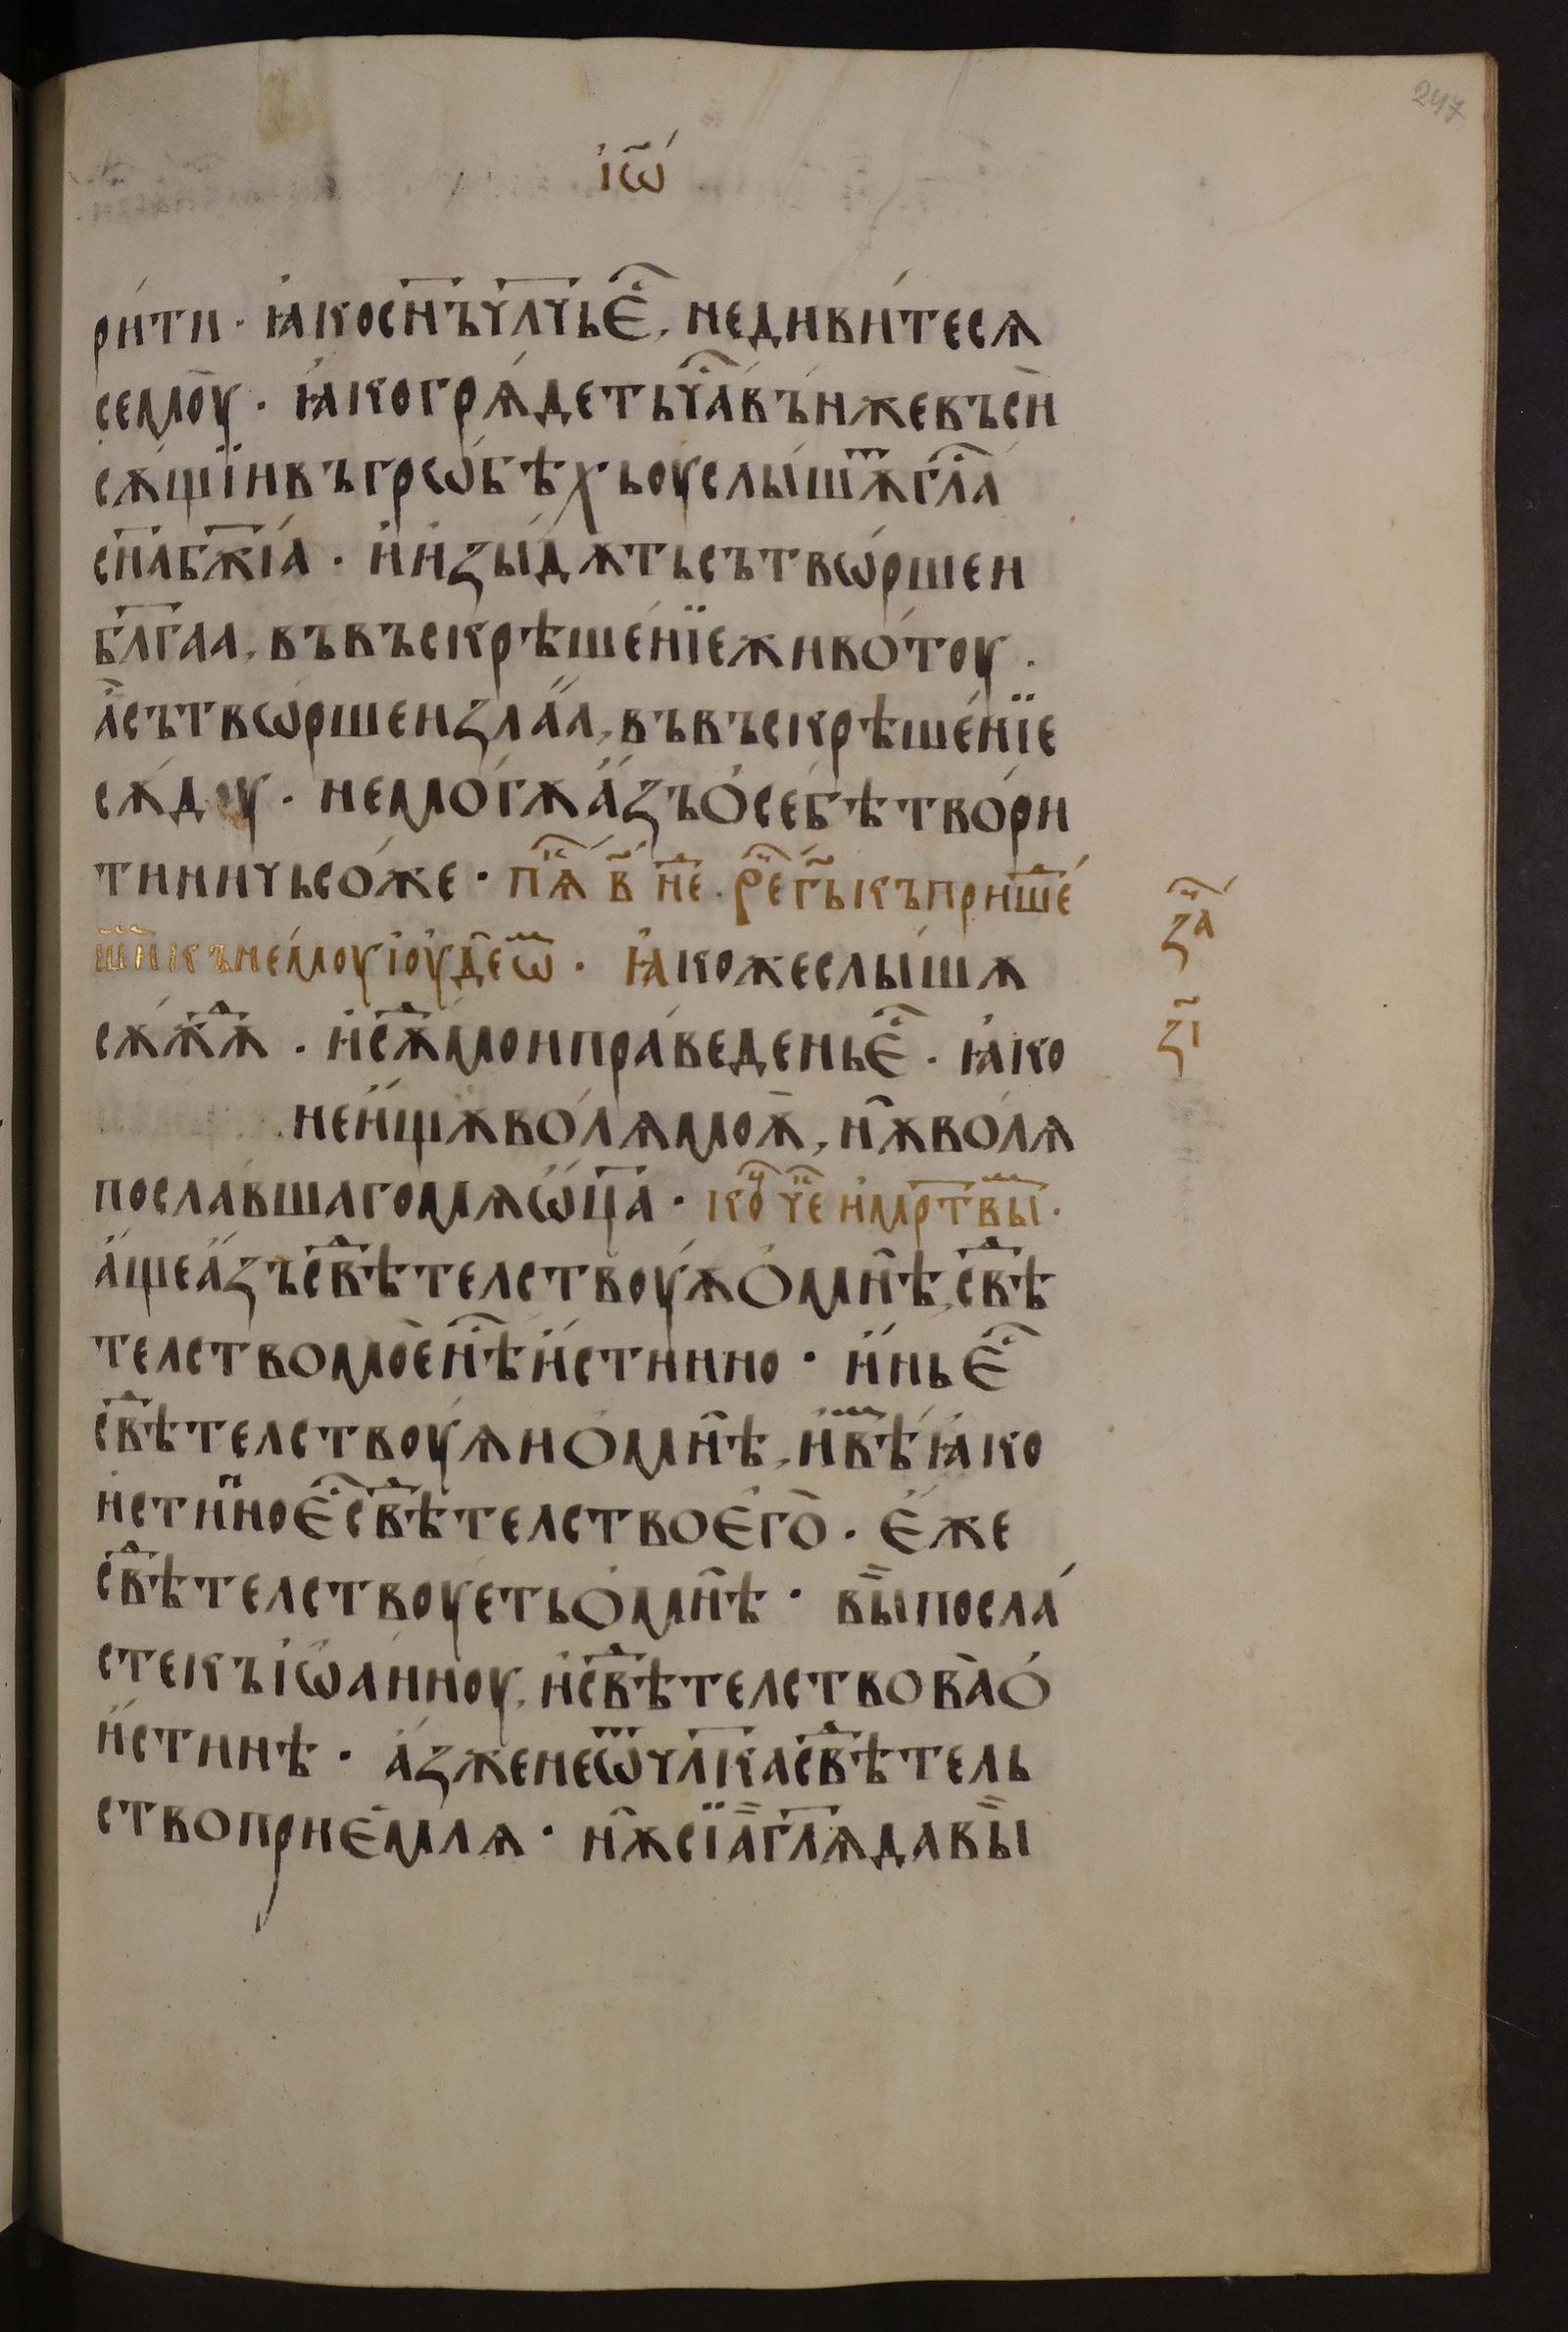 247
і҆ѡ҃
ри́ти · ꙗ҆коси҃ъчл҃чье҆ⷭ҇, недиви́тесѧ
семоу̀ · ꙗ҆когрѧ́детьчⷭ҇авъ́ньжевъсѝ
сѫ́щїивъгрѡ́бѣхьоуслы́шѫⷮгл҃а
сн҃абж҃їа · и҆и҆зы́дѫтьсътвѡ́ршеи
бл҃гаа, въвъскрѣше́нїеживо́тоу ·
а҆̀сътвѡ́ршеизла́а, въвъскрѣше́нїе
сѫ́доу · немо́гѫа҆́зъо҆себѣ̀тво́ри
тиничьсо́же · пⷪ҇ѧ҃ в҃ неⷣ · речⷱ҇егь҃къприше́ⷣ
шїⷨкънемоуі҆оуде́ѡⷨ · ꙗ҆кожеслы́шѫ
сѫжѫ́ⷣ · и҆сѫⷣмоипра́веденье҆ⷭ҇ · ꙗ҆ко
неи҆щѫ́во́лѧмоѫ̀, нѫ̀во́лѧ
посла́вшагомѧѡ҆ц҃а · коⷰ҇ чеⷦ҇ и҆мртⷡвы ·
а҆́щеа҆́зъсвⷣѣтелствоу́ѫо҆мнѣ̀, свⷣѣ
телствомоѐнⷭ҇ѣи҆́стинно · и҆́нье҆ⷭ҇
свⷣѣтелствоу́ѧио҆мнѣ̀, и҆вѣⷨꙗ҆ко
и҆стинное҆ⷭ҇свⷣѣтелствое҆гѡ̀ · е҆́же
свⷣѣтелствоу́етьо҆мнѣ̀ · вы̀посла́
стекъі҆ѡа́нноу, и҆свⷣѣтелствова̀о҆
и҆́стинѣ · а҆́зженеѡⷮчл҃касвⷣѣтель
ствоприе́млѧ · нѫ̀сїа̀гл҃ѧдавы̀
заⷱ҇
з҃і